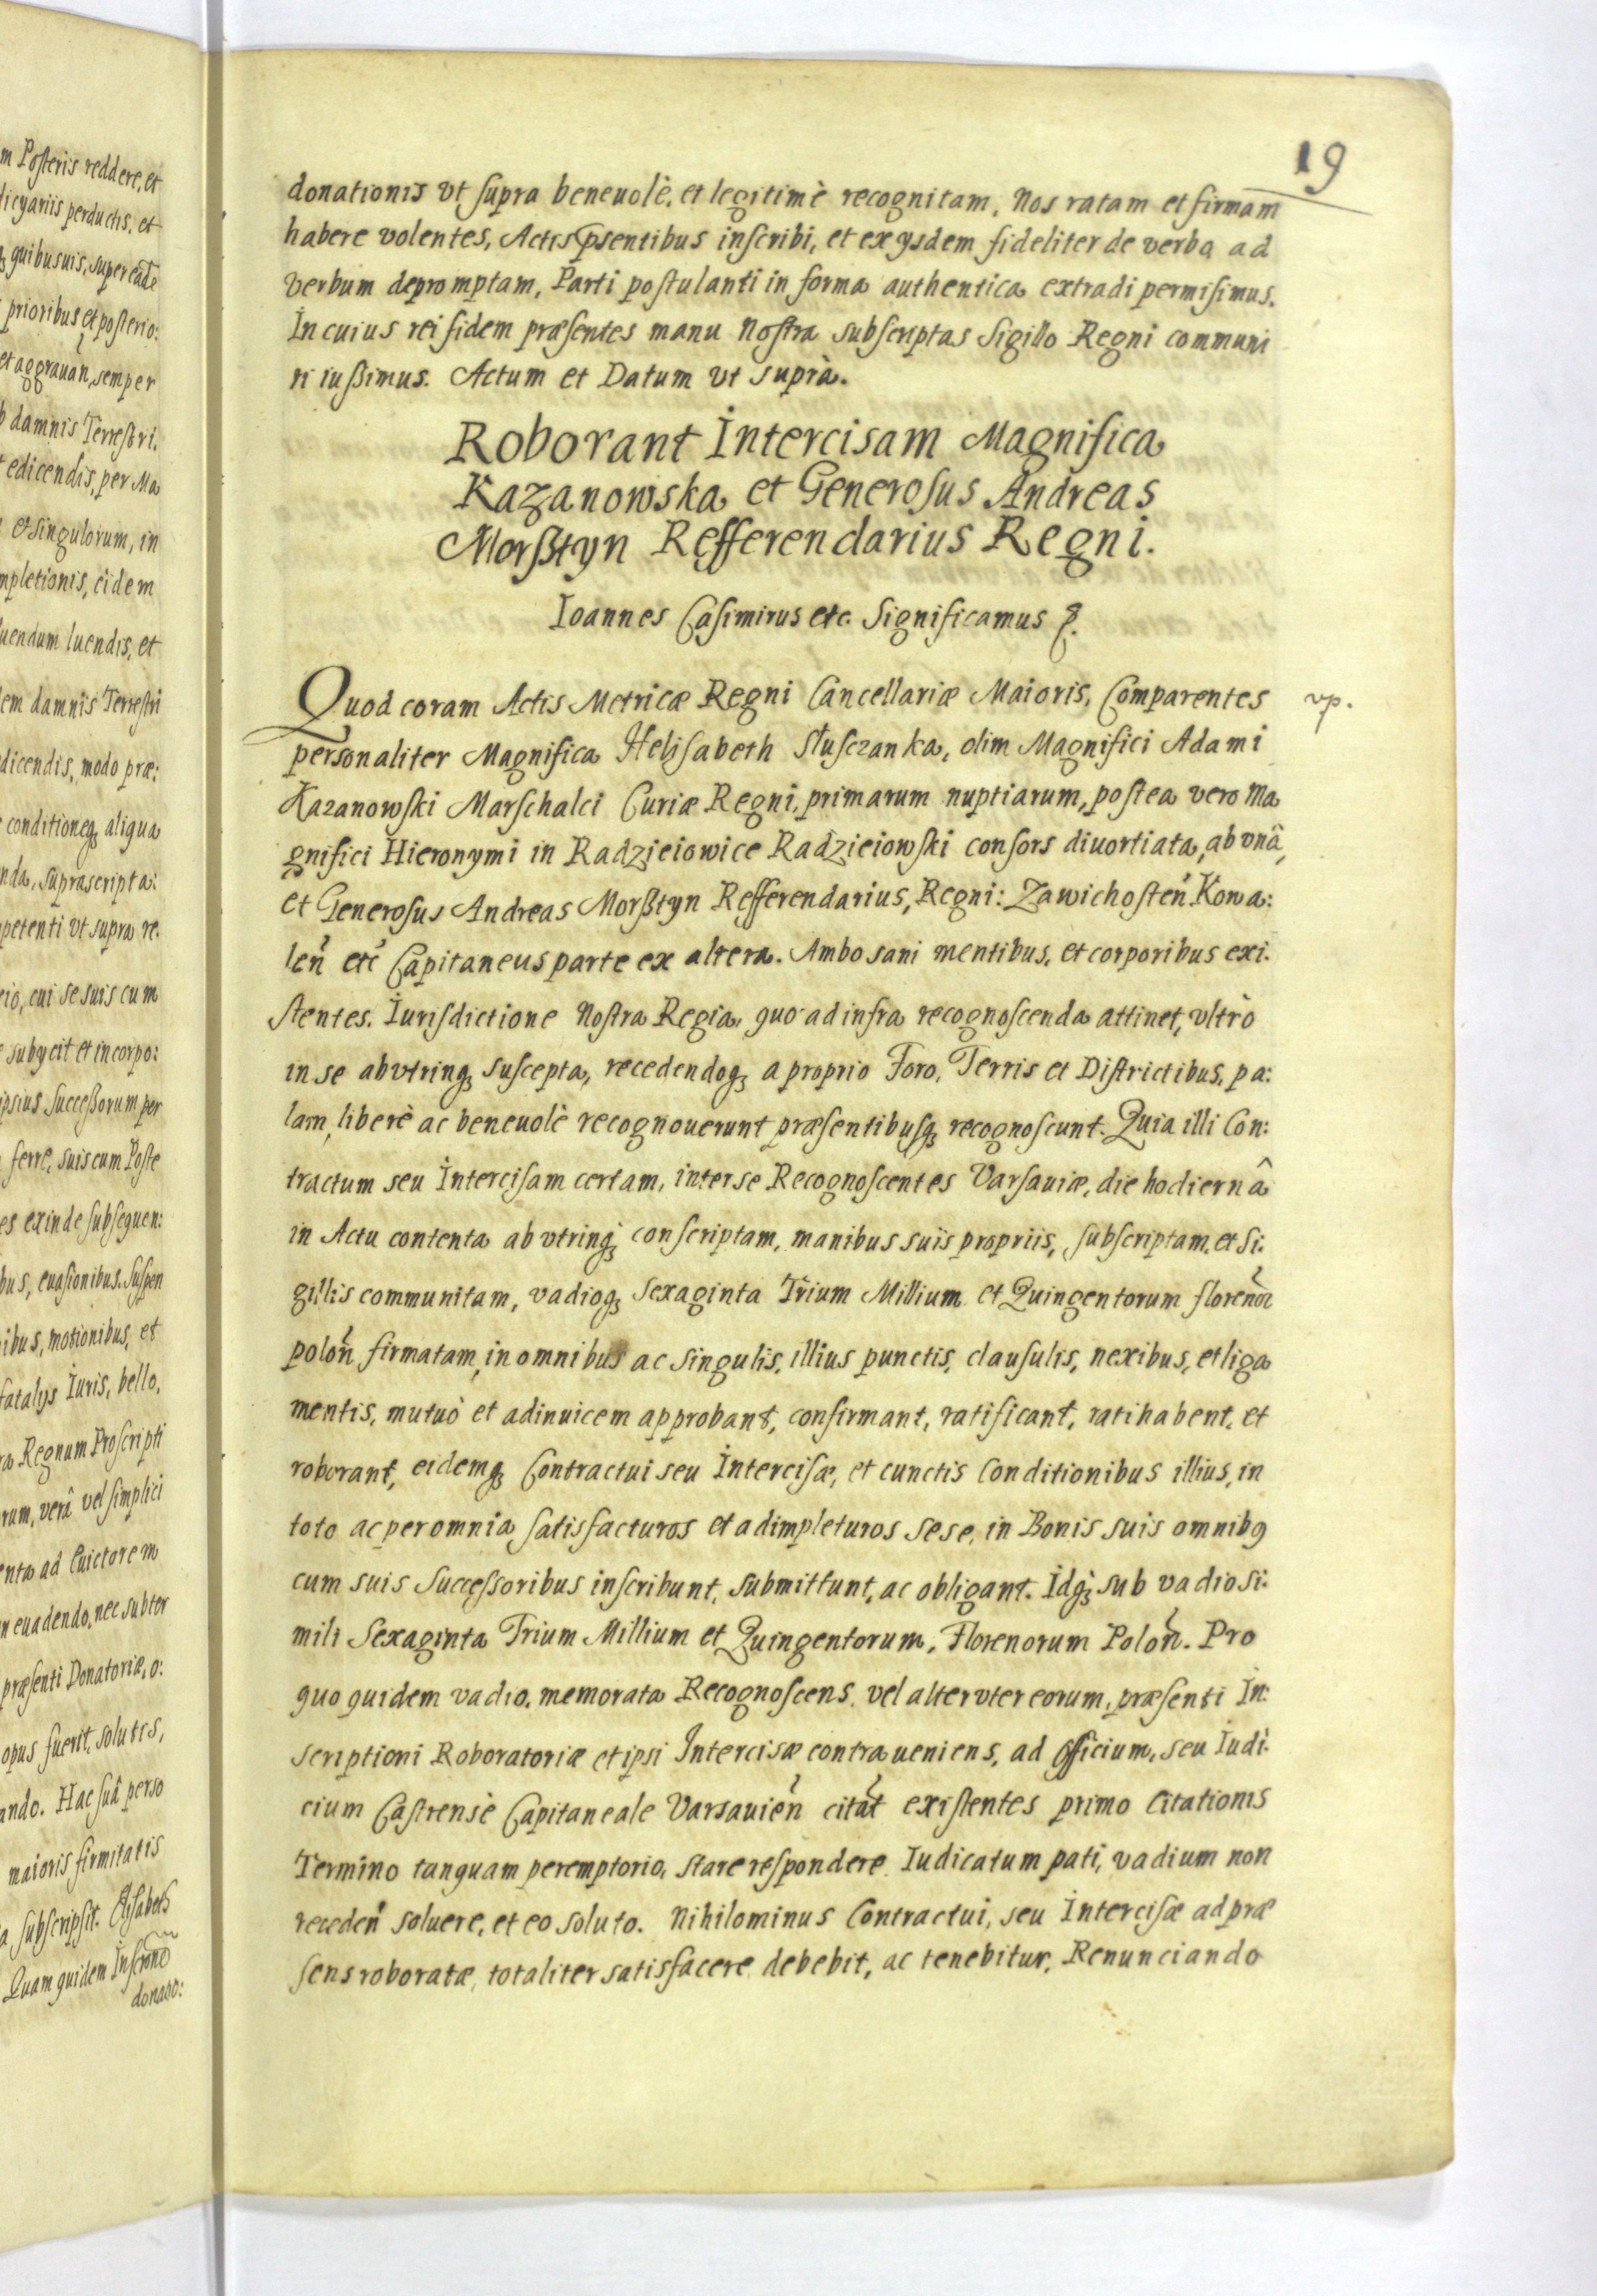 m Posteris reddere, et
licyariis perductis, et
quibusuis, super eade
prioribus et posterio:
et aggrauan, semper
damnis Terrestri.
edicendis, per Ma
et singulorum, in
mpletionis, eidem
uendum luendis, et
em damnis Terrestri
dicendis, modo præ:
conditioneq aliqua
nda, suprascripta:
petenti vt supra re.
cui se suis cum
subycit et incorpo:
ipsius Successorum per
ferre, suis cum Poste
es exinde subsequen:
bus, euasionibus. Suspen
ibus, motionibus, et
fatalys Iuris, bello,
Regnum Proscripti
rum, verâ vel simplici
enta ad Euictorem
euadendo, nec subter
præsenti Donatoriæ, o:
opus fuerit, solutis,
ando. Hac suâ perso
maioris firmitatis
subscripsit. Elisabeth
Quam quidem Inscrione
donatio:
19
donationis vt supra beneuolè, et legitimè recognitam, Nos ratam et firmam
habere volentes, Actis psentibus inscribi, et ex ysdem fideliter de verbo ad
verbum depromptam, Parti postulanti in forma authentica extradi permisimus.
In cuius rei fidem præsentes manu Nostra subscriptas Sigillo Regni communi
ri iussimus. Actum et Datum vt suprà.
Roborant Intercisam Magnifica
Kazanowska et Generosus Andreas
Morsztyn Refferendarius Regni.
Ioannes Casimirus etc. Significamus
Quod coram Actis Metricæ Regni Cancellariæ Maioris, Comparentes
vp.
personaliter Magnifica Helisabeth Słusczanka, olim Magnifici Adami
Kazanowski Marschalci Curiæ Regni, primarum nuptiarum, postea vero Ma
gnifici Hieronymi in Radzieiowice Radzieiowski consors diuortiata, ab vnâ,
et Generosus Andreas Morsztyn Refferendarius, Regni: Zawichosten Kowa:
len etc Capitaneus parte ex altera. Ambo sani mentibus, et corporibus exi.
stentes. Iurisdictione Nostra Regia, quo ad infra recognoscenda attinet, vltrò
in se ab vtrinq suscepta, recedendoq a proprio Foro, Terris et Districtibus, pa:
lam, liberè ac beneuolè recognouerunt præsentibusq recognoscunt. Quia illi Con:
tractum seu Intercisam certam, inter se Recognoscentes Varsauiæ, die hodiernâ
in Actu contenta ab vtrinq conscriptam, manibus suis propriis, subscriptam, et Si:
gillis communitam, vadioq Sexaginta Trium Millium et Quingentorum florenor
polon firmatam, in omnibus ac singulis, illius punctis, clausulis, nexibus, et liga
mentis, mutuò et adinuicem approbant, confirmant, ratificant, ratihabent, et
roborant, eidemq Contractui seu Intercisæ, et cunctis Conditionibus illius, in
toto ac per omnia satisfacturos et adimpleturos sese, in Bonis suis omnib9
cum suis Successoribus inscribunt, submittunt, ac obligant. Idq sub vadio si:
mili Sexaginta Trium Millium et Quingentorum, Florenorum Polon. Pro
quo quidem vadio, memorata Recognoscens vel alteruter eorum, præsenti In:
scriptioni Roboratoriæ et ipsi Intercisæ contraueniens, ad Officium, seu Iudi:
cium Castrense Capitaneale Varsauien citat existentes primo Citationis
Termino tanquam peremptorio, stare respondere Iudicatum pati, vadium non
receden soluere, et eo soluto. Nihilominus Contractui, seu Intercisæ ad præ
sens roboratæ, totaliter satisfacere debebit, ac tenebitur, Renunciando